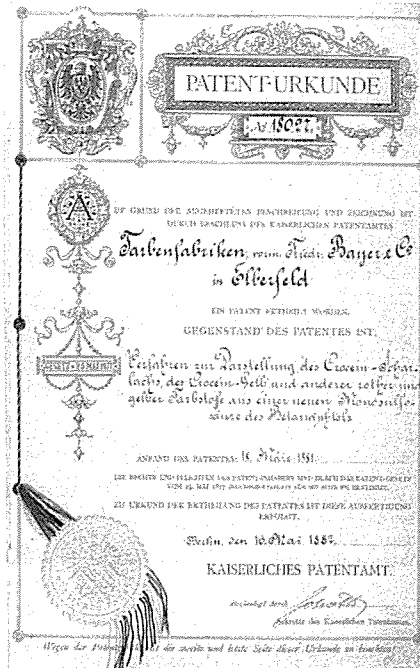 PATENT-URKUNDE
№ 18027.
AUF GRUND DER ANGEHEFTETEN BESCHREIBUNG UND ZEICHNUNG IST
DURCH BESCHLUSS DES KAISERLICHEN PATENTAMTES
Farbenfabriken, vorm. Friedr. Bayer & Co
in Elberfeld
EIN PATENT ERTHEILT WORDEN.
GEGENSTAND DES PATENTES IST:
Verfahren zur Darstellung des Crocein-Schar-
lachs, des Crocein-Gelb und anderer rother und
gelber Farbstoffe aus einer neuen Monosulfo-
säure des Betanaphtols
ANFANG DES PATENTES: 18. März 1881.
DIE RECHTE UND PFLICHTEN DES PATENT-INHABERS SIND DURCH DAS PATENT-GESETZ
VOM 25. MAI 1877
ZU URKUND DER ERTHEILUNG DES PATENTES IST DIESE AUSFERTIGUNG
ERFOLGT.
Berlin, den 16. Mai 1882.
KAISERLICHES PATENTAMT.
Wegen der Patent ist die zweite und letzte Seite dieser Urkunde zu beachten